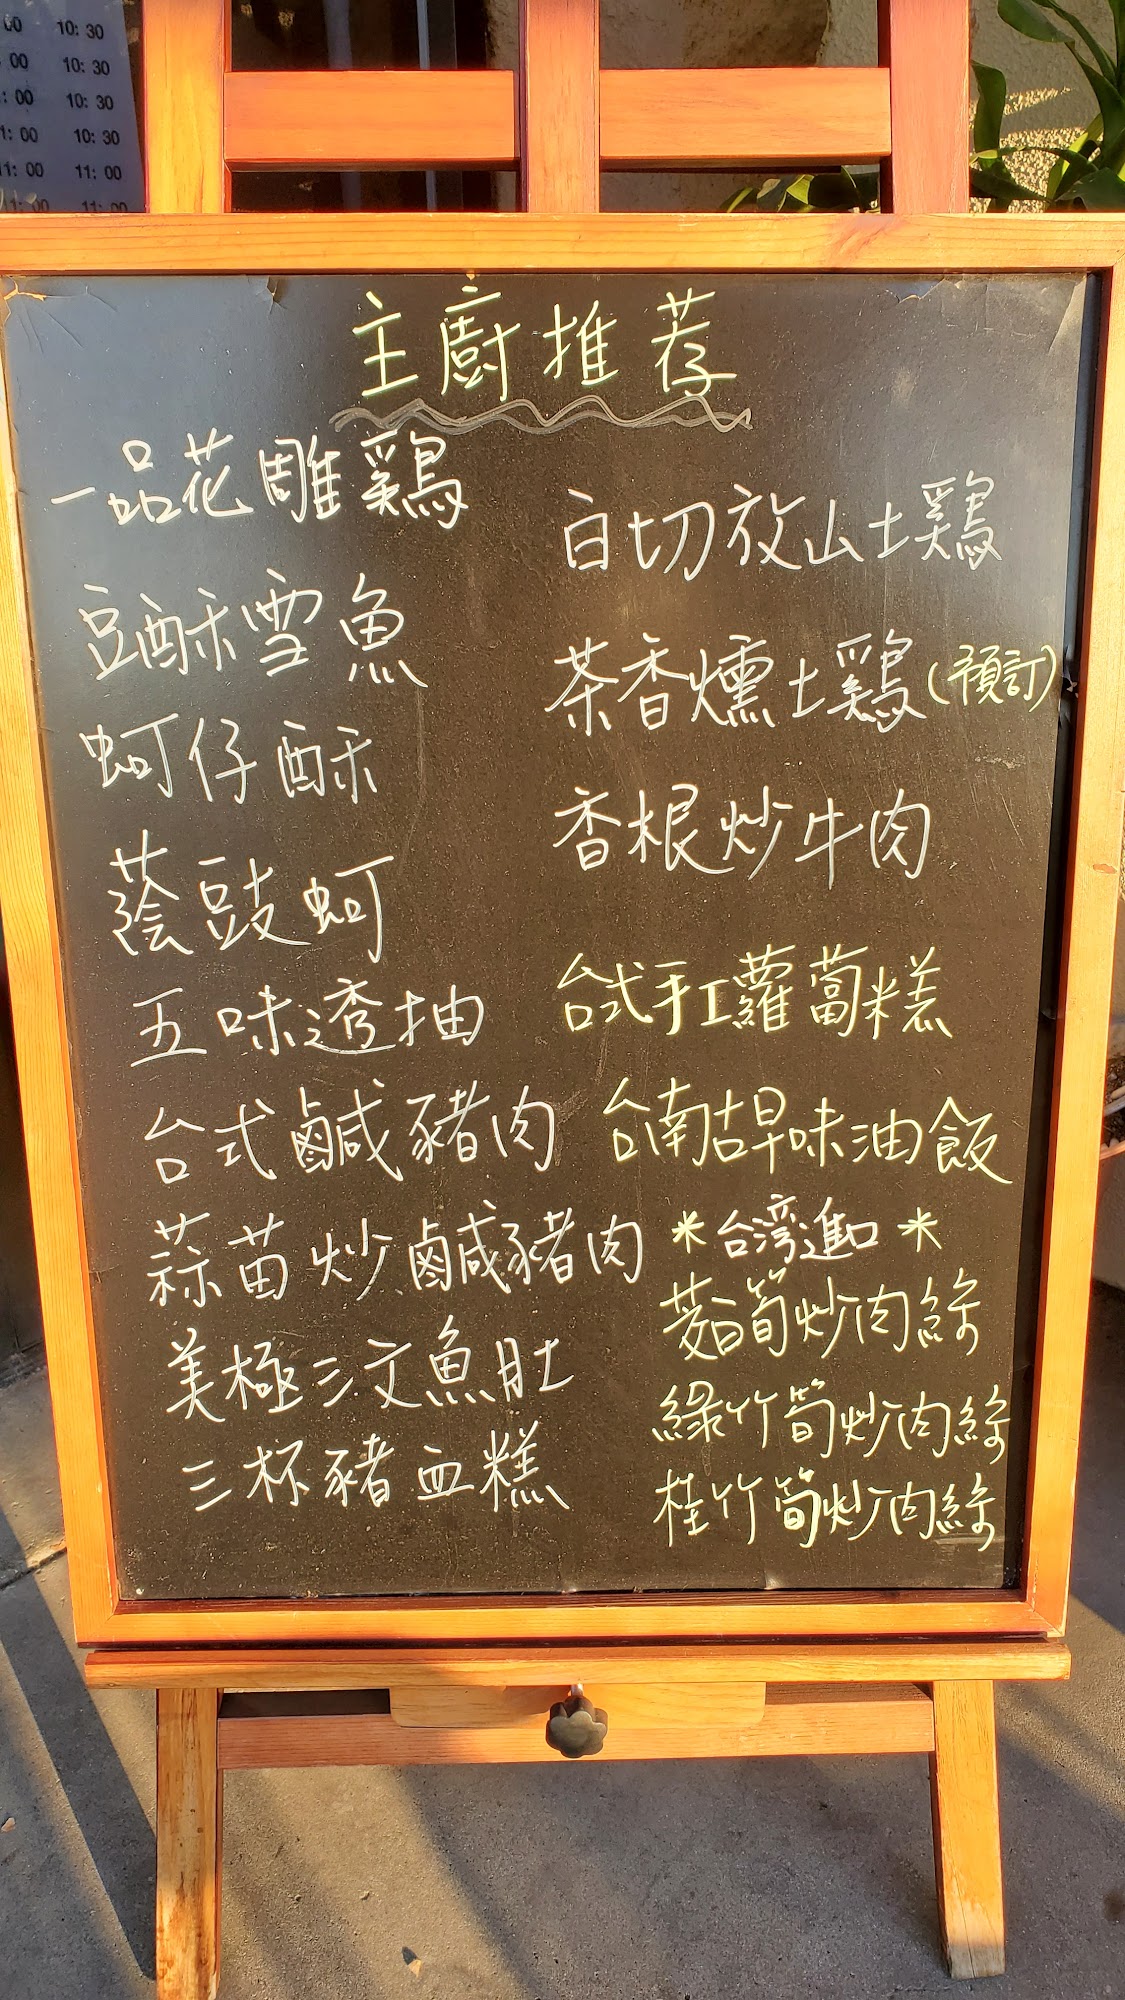 00 10: 30
00 10: 30
: 00 10: 30
1: 00 10: 30
11: 00 11: 00
11: 00 11: 00
主廚推荐
一品花雕鷄
豆酥雪魚
蚵仔酥
蔭豉蚵
五味透抽
台式鹹豬肉
蒜苗炒鹹豬肉
美極三文魚肚
三杯豬血糕
白切放山土鷄
茶香燻土鷄(預訂)
香根炒牛肉
台式手工蘿蔔糕
台南古早味油飯
*台湾進口*
茭白筍炒肉絲
綠竹筍炒肉絲
桂竹筍炒肉絲